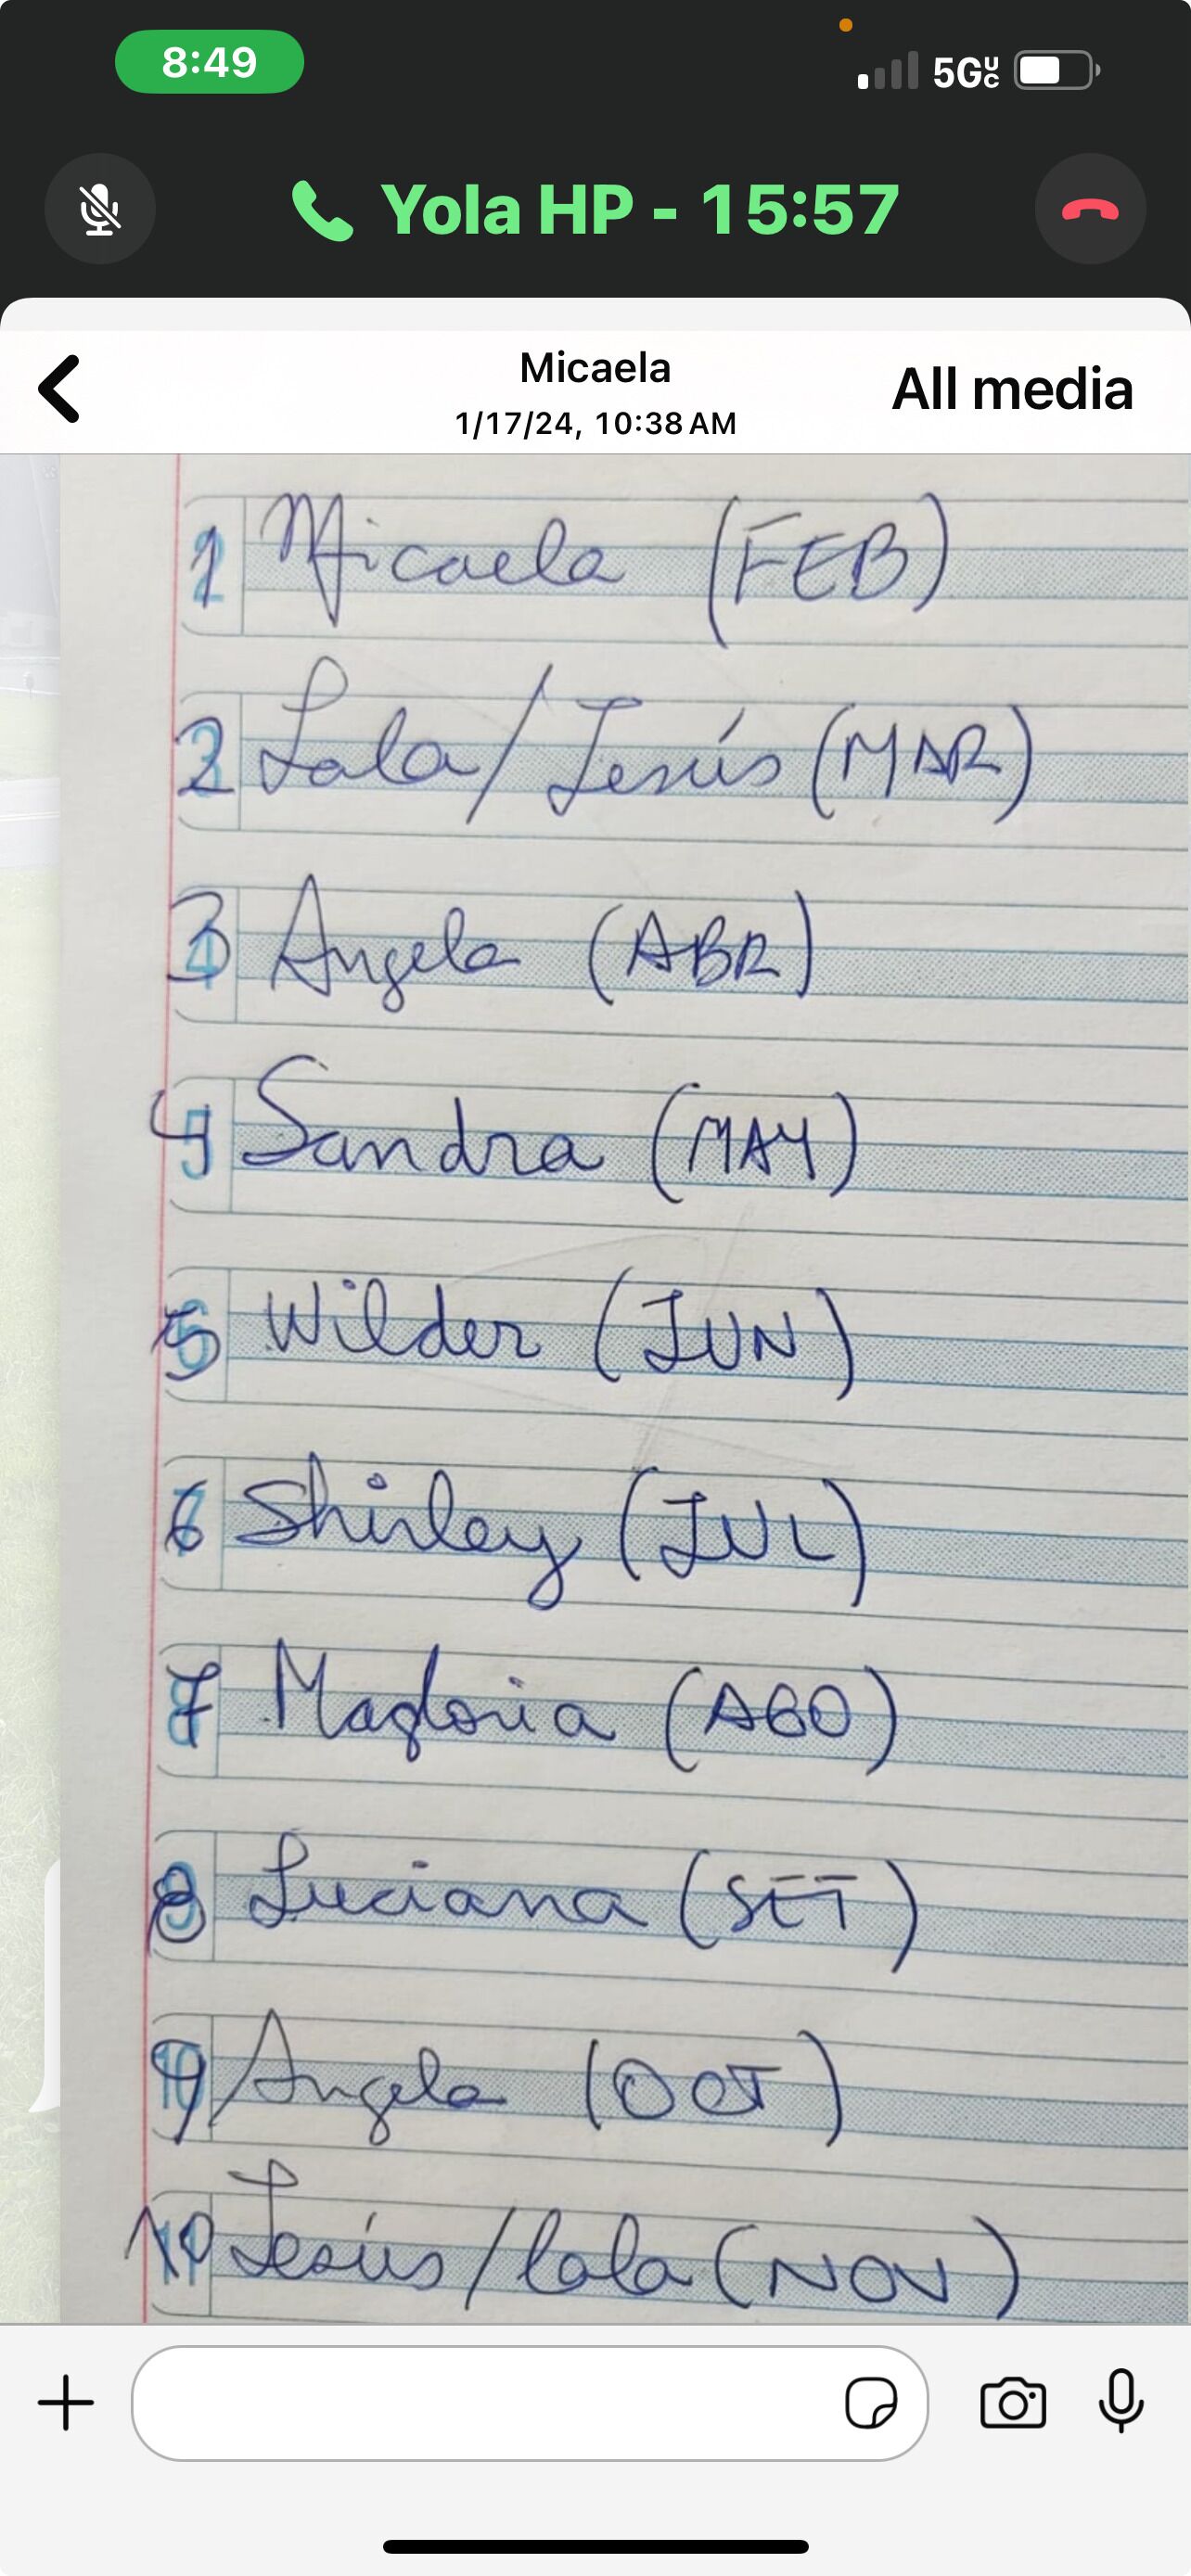 8:49
5GUC
Yola HP - 15:57
Micaela
1/17/24, 10:38 AM
All media
1 Micaela (FEB)
2 Lola/Jesús (MAR)
3 Angela (ABR)
4 Sandra (MAY)
5 Wilder (JUN)
6 Shirley (JUL)
7 Magloria (AGO)
8 Luciana (SET)
9 Angela (OCT)
10 Jesús/Lola (NOV)